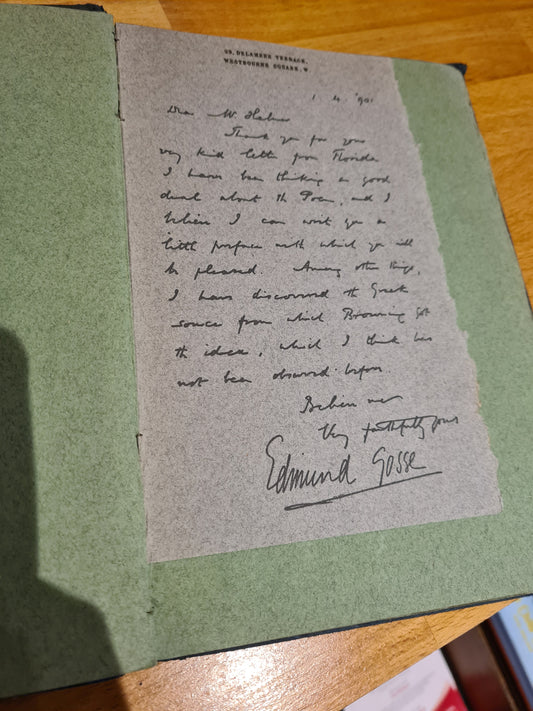 29, DELAMERE TERRACE,
WESTBOURNE SQUARE, W.
1. 4. '901
Dear Mr.
Thank you for your
very kind letter from Florida.
I have been thinking a good
deal about the Poem, and I
believe I can write you a
little preface with which you will
be pleased. Among other things,
I have discovered the Greek
source from which Browning got
the idea, which I think has
not been observed before.
Believe me
Very faithfully yours
Edmund Gosse